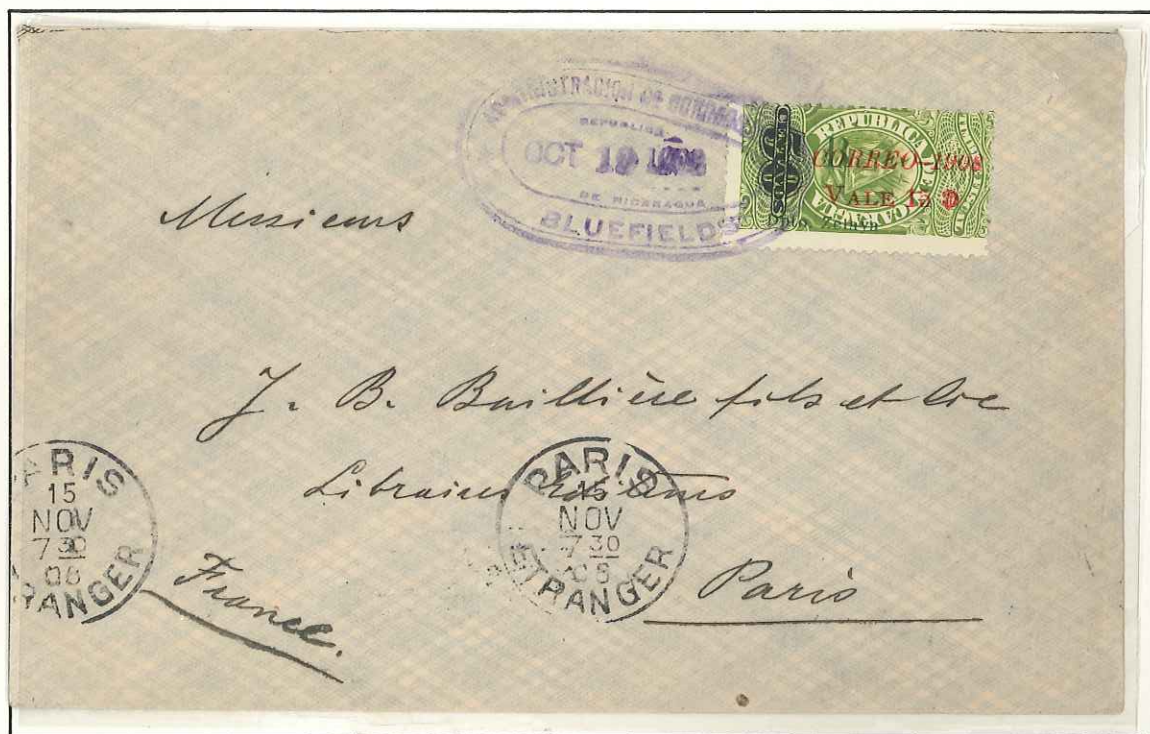 ADMINISTRACION DE CORREOS
REPUBLICA
OCT 19 1908
DE NICARAGUA
BLUEFIELDS
REPÚBLICA DE NICARAGUA
CORREO-1908
VALE 15
Messieurs
J. B. Baillière fils et Cie
Libraires Editeurs
Paris
France.
PARIS
15
NOV
7 30
08
ETRANGER
PARIS
15
NOV
7 30
08
ETRANGER